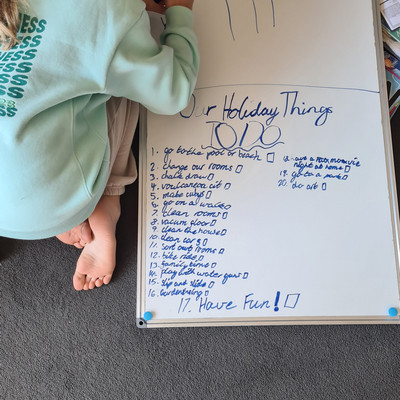 NESS
NESS
NESS
NESS
Our Holiday Things
TO DO
1. go to the pool or beach
2. change our rooms
3. chalk draw
5. make cubys
6. go on a walk
7. clean rooms
8. vacum floor
9. clean the house
10. clean cars
11. sort out rooms
12. bike ride
13. family time
14. play with water guns
15. slip and slide
16.
17. Have Fun!
18. have a movie
night at home
19. go to a park
20. do art